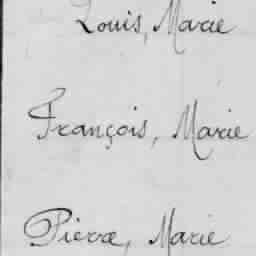 Louis, Marie
François, Marie
Pierre, Marie